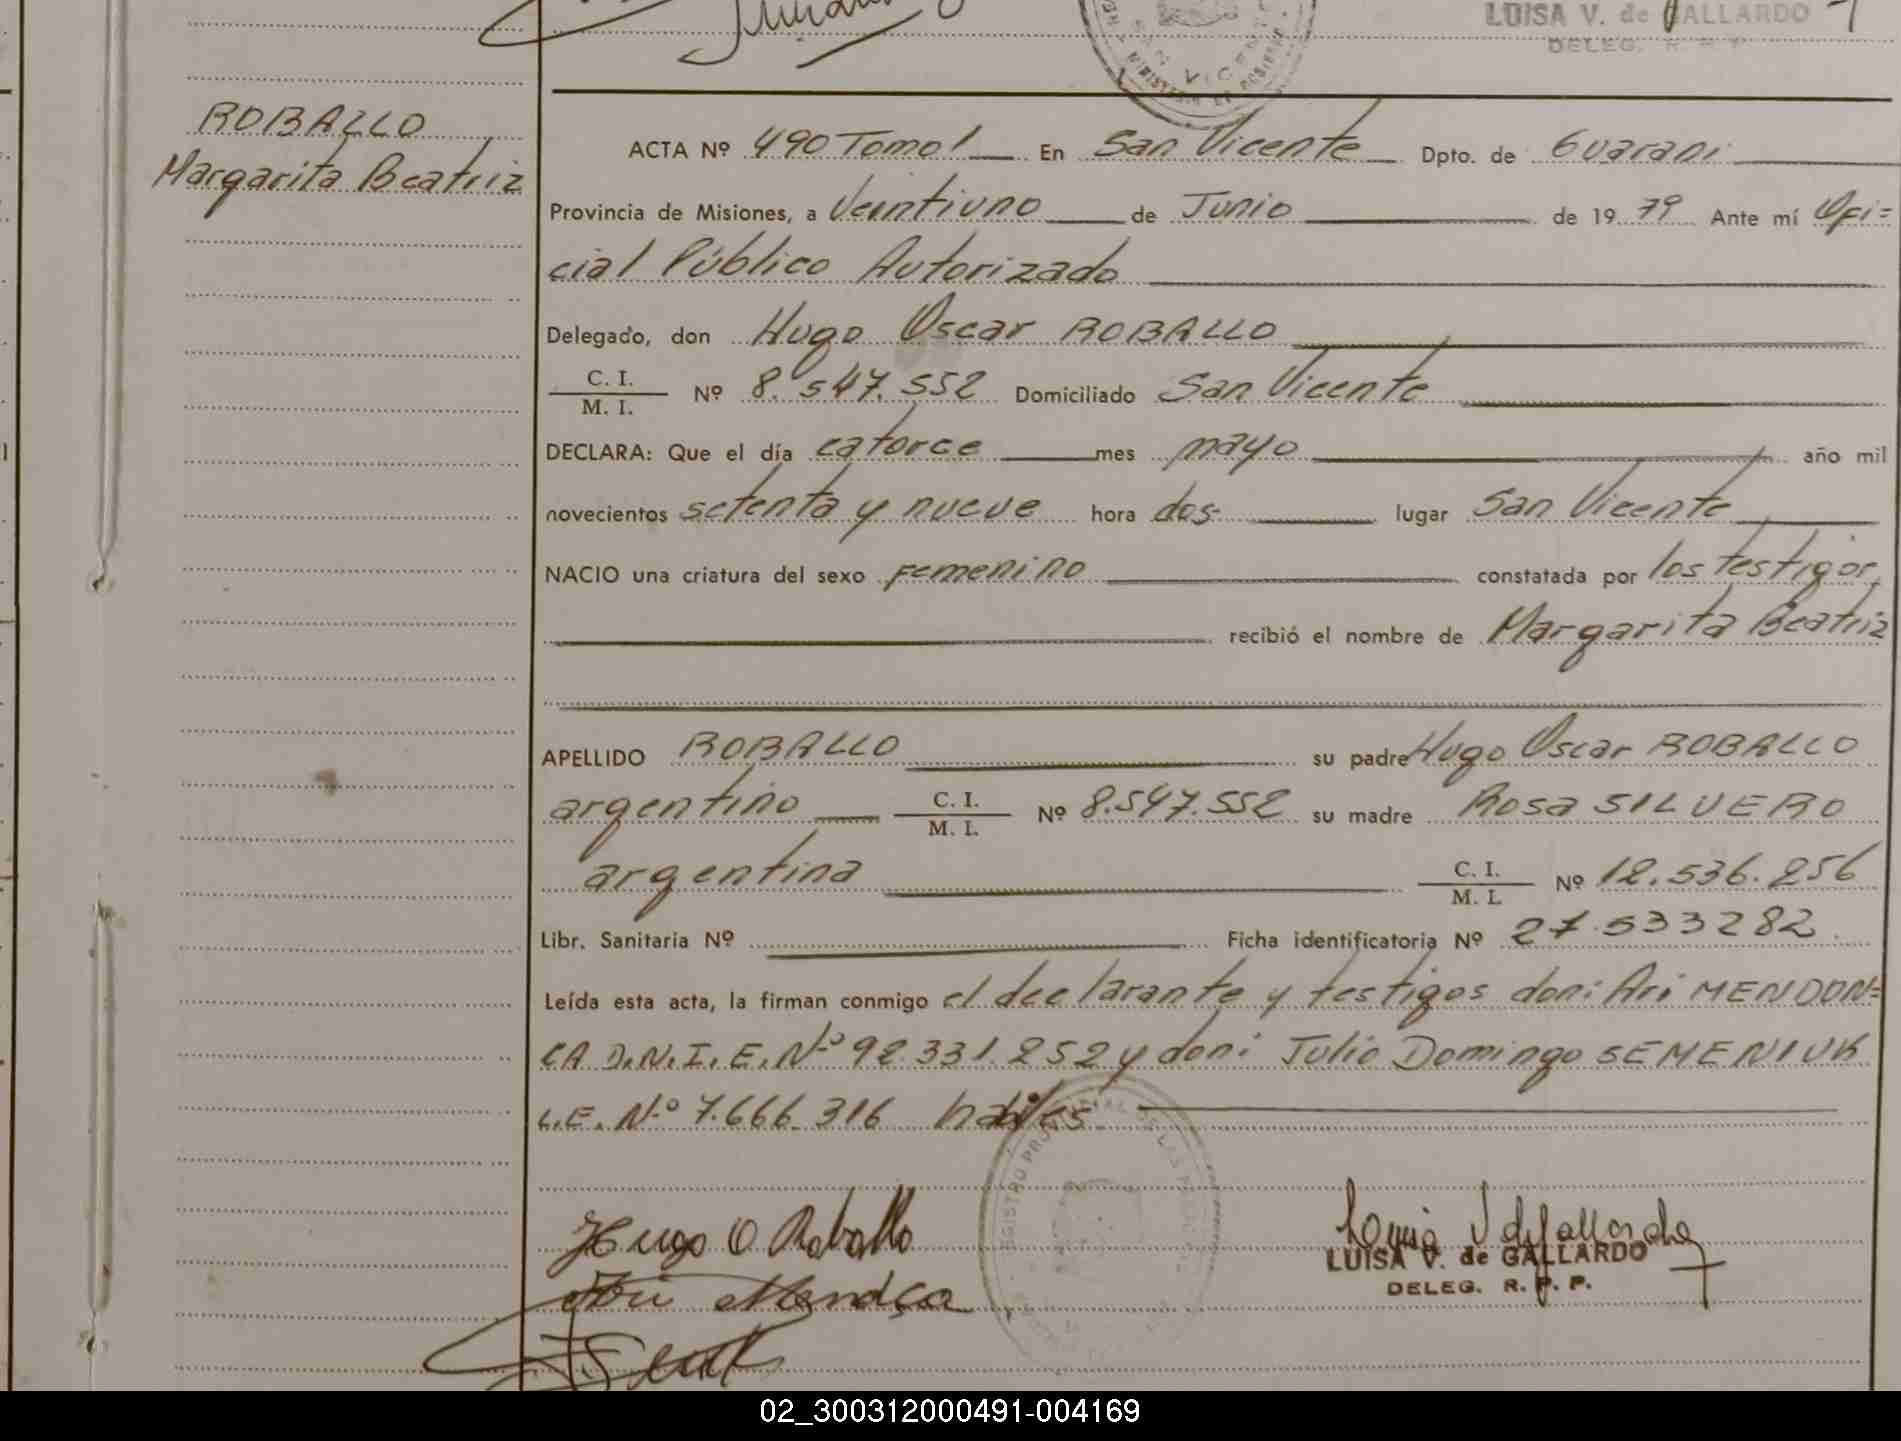 LUISA V. de GALLARDO
DELEG. R. P. P.
SAN VICENTE
ROBALLO
Margarita Beatriz
ACTA Nº 490 Tomo I En San Vicente Dpto. de Guaraní
Provincia de Misiones, a Veintiuno de Junio de 1979 Ante mí Ofi=
cial Público Autorizado
Delegado, don Hugo Oscar ROBALLO
C. I. / M. I. Nº 8.547.552 Domiciliado San Vicente
DECLARA: Que el día catorce mes mayo año mil
novecientos setenta y nueve hora dos lugar San Vicente
NACIO una criatura del sexo Femenino constatada por los testigos,
recibió el nombre de Margarita Beatriz
APELLIDO ROBALLO su padre Hugo Oscar ROBALLO
argentino C. I. / M. I. Nº 8.547.552 su madre Rosa SILVERO
argentina C. I. / M. I. Nº 12.536.256
Libr. Sanitaria Nº Ficha identificatoria Nº 27.533282
Leída esta acta, la firman conmigo el declarante y testigos don: Ari MENDON=
CA D.N.I.E. Nº 92.331.252 y don: Julio Domingo SEMENIUK
L.E. Nº 7.666.316 hábiles
Hugo O Roballo
Ari Mendça
LUISA V. de GALLARDO
DELEG. R. P. P.
02_300312000491-004169